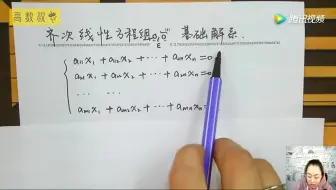 高数叔
腾讯视频
齐次线性方程组 基础解系.
a₁₁x₁ + a₁₂x₂ + ··· + a₁ₙxₙ = 0
a₂₁x₁ + a₂₂x₂ + ··· + a₂ₙxₙ = 0
··· ···
aₘ₁x₁ + aₘ₂x₂ + ··· + aₘₙxₙ =